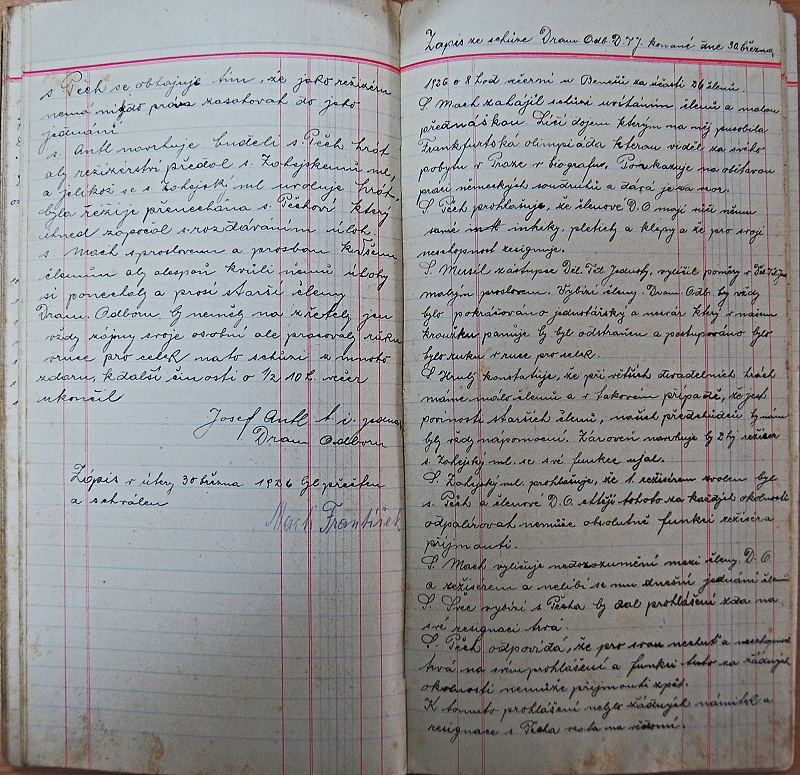 s Pěch se obhajuje tím, že jako režisérem
nemá nikdo práva zasahovat do jeho
jednání
s. Antl navrhuje budeli s. Pěch hrát
aby rezizerství předal s. Zahejskemu ml.
a jelikož se s Zahejský ml uvoluje hrát
byla režije přenechána s. Pěchovi který
ihned započal s rozdáváním úloh.
s Mach s proslovem a prosbou k
členům aby alespoň kvůli němu úlohy
si ponechaly a prosí starší členy
Dram. Odboru by neměly na zřetely jen
vždy zájmy svoje osobní ale pracovaly ruku
v ruce pro celek nato schůzi z mnoho
zdaru k další činosti o 1/2 10 h. večer
ukončil
Josef Antl t. č. jedna
Dram Odboru
Zápis v úterý 30 března 1926 byl přečten
a schválen
Mach František
Zápis ze schůze Dram Odb. D.T.J. konané dne 30. března
1926 o 8 hod večerní u Benešů za účasti 26 členů.
S. Mach zahájil schůzi uvítáním členů a malou
přednáškou. Líčí dojem kterým na něj působila
Frankfurtská olimpiáda kterou viděl za svého
pobytu v Praze v biografu. Poukazuje na obětavou
práci německých soudruhů a dává je za vzor.
S. Pěch prohlašuje, že členové D.O. mají vůči němu
samé intriky, pletichy a klepy a že pro svoji
neschopnost resignuje.
S. Musil zástupce Děl. Těl. Jednoty, vylíčil poměry v Děl. T. J.
malým proslovem. Vybízí členy Dram. Odb. by vždy
bylo pokračováno jednotářsky a nesvár který v našem
kroužku panuje by byl odstraněn a postupováno bylo
bylo ruku v ruce pro celek.
S. Krulý konstatuje, že při větších divadelních hrách
máme málo členů a v takovém případě, že jest
povinností starších členů, našich předchůdců by nám
byly vždy nápomocni. Zároveň navrhuje by 2hý režisér
s. Zahejský ml. se své funkce ujal.
S. Zahejský ml. prohlašuje, že 1. režisérem zvolen byl
s. Pěch a členové D.O. chtějí tohoto za každých okolností
odpalírovat nemůže absolutně funkci režiséra
přijmouti.
S. Mach vyličuje nedorozumění mezi členy D. O.
a režisérem a nelíbí se mu dnešní jednání členů
S. Švec vybízí s Pěcha by dal prohlášení zda na
své resignaci trvá.
S. Pěch odpovídá, že pro svou nechuť a neschopnost
trvá na svém prohlášení a funkci tuto za žádných
okolností nemůže přijmouti zpět.
K tomuto prohlášení nebylo žádných námitek a
resignace s. Pěcha vzata na vědomí.